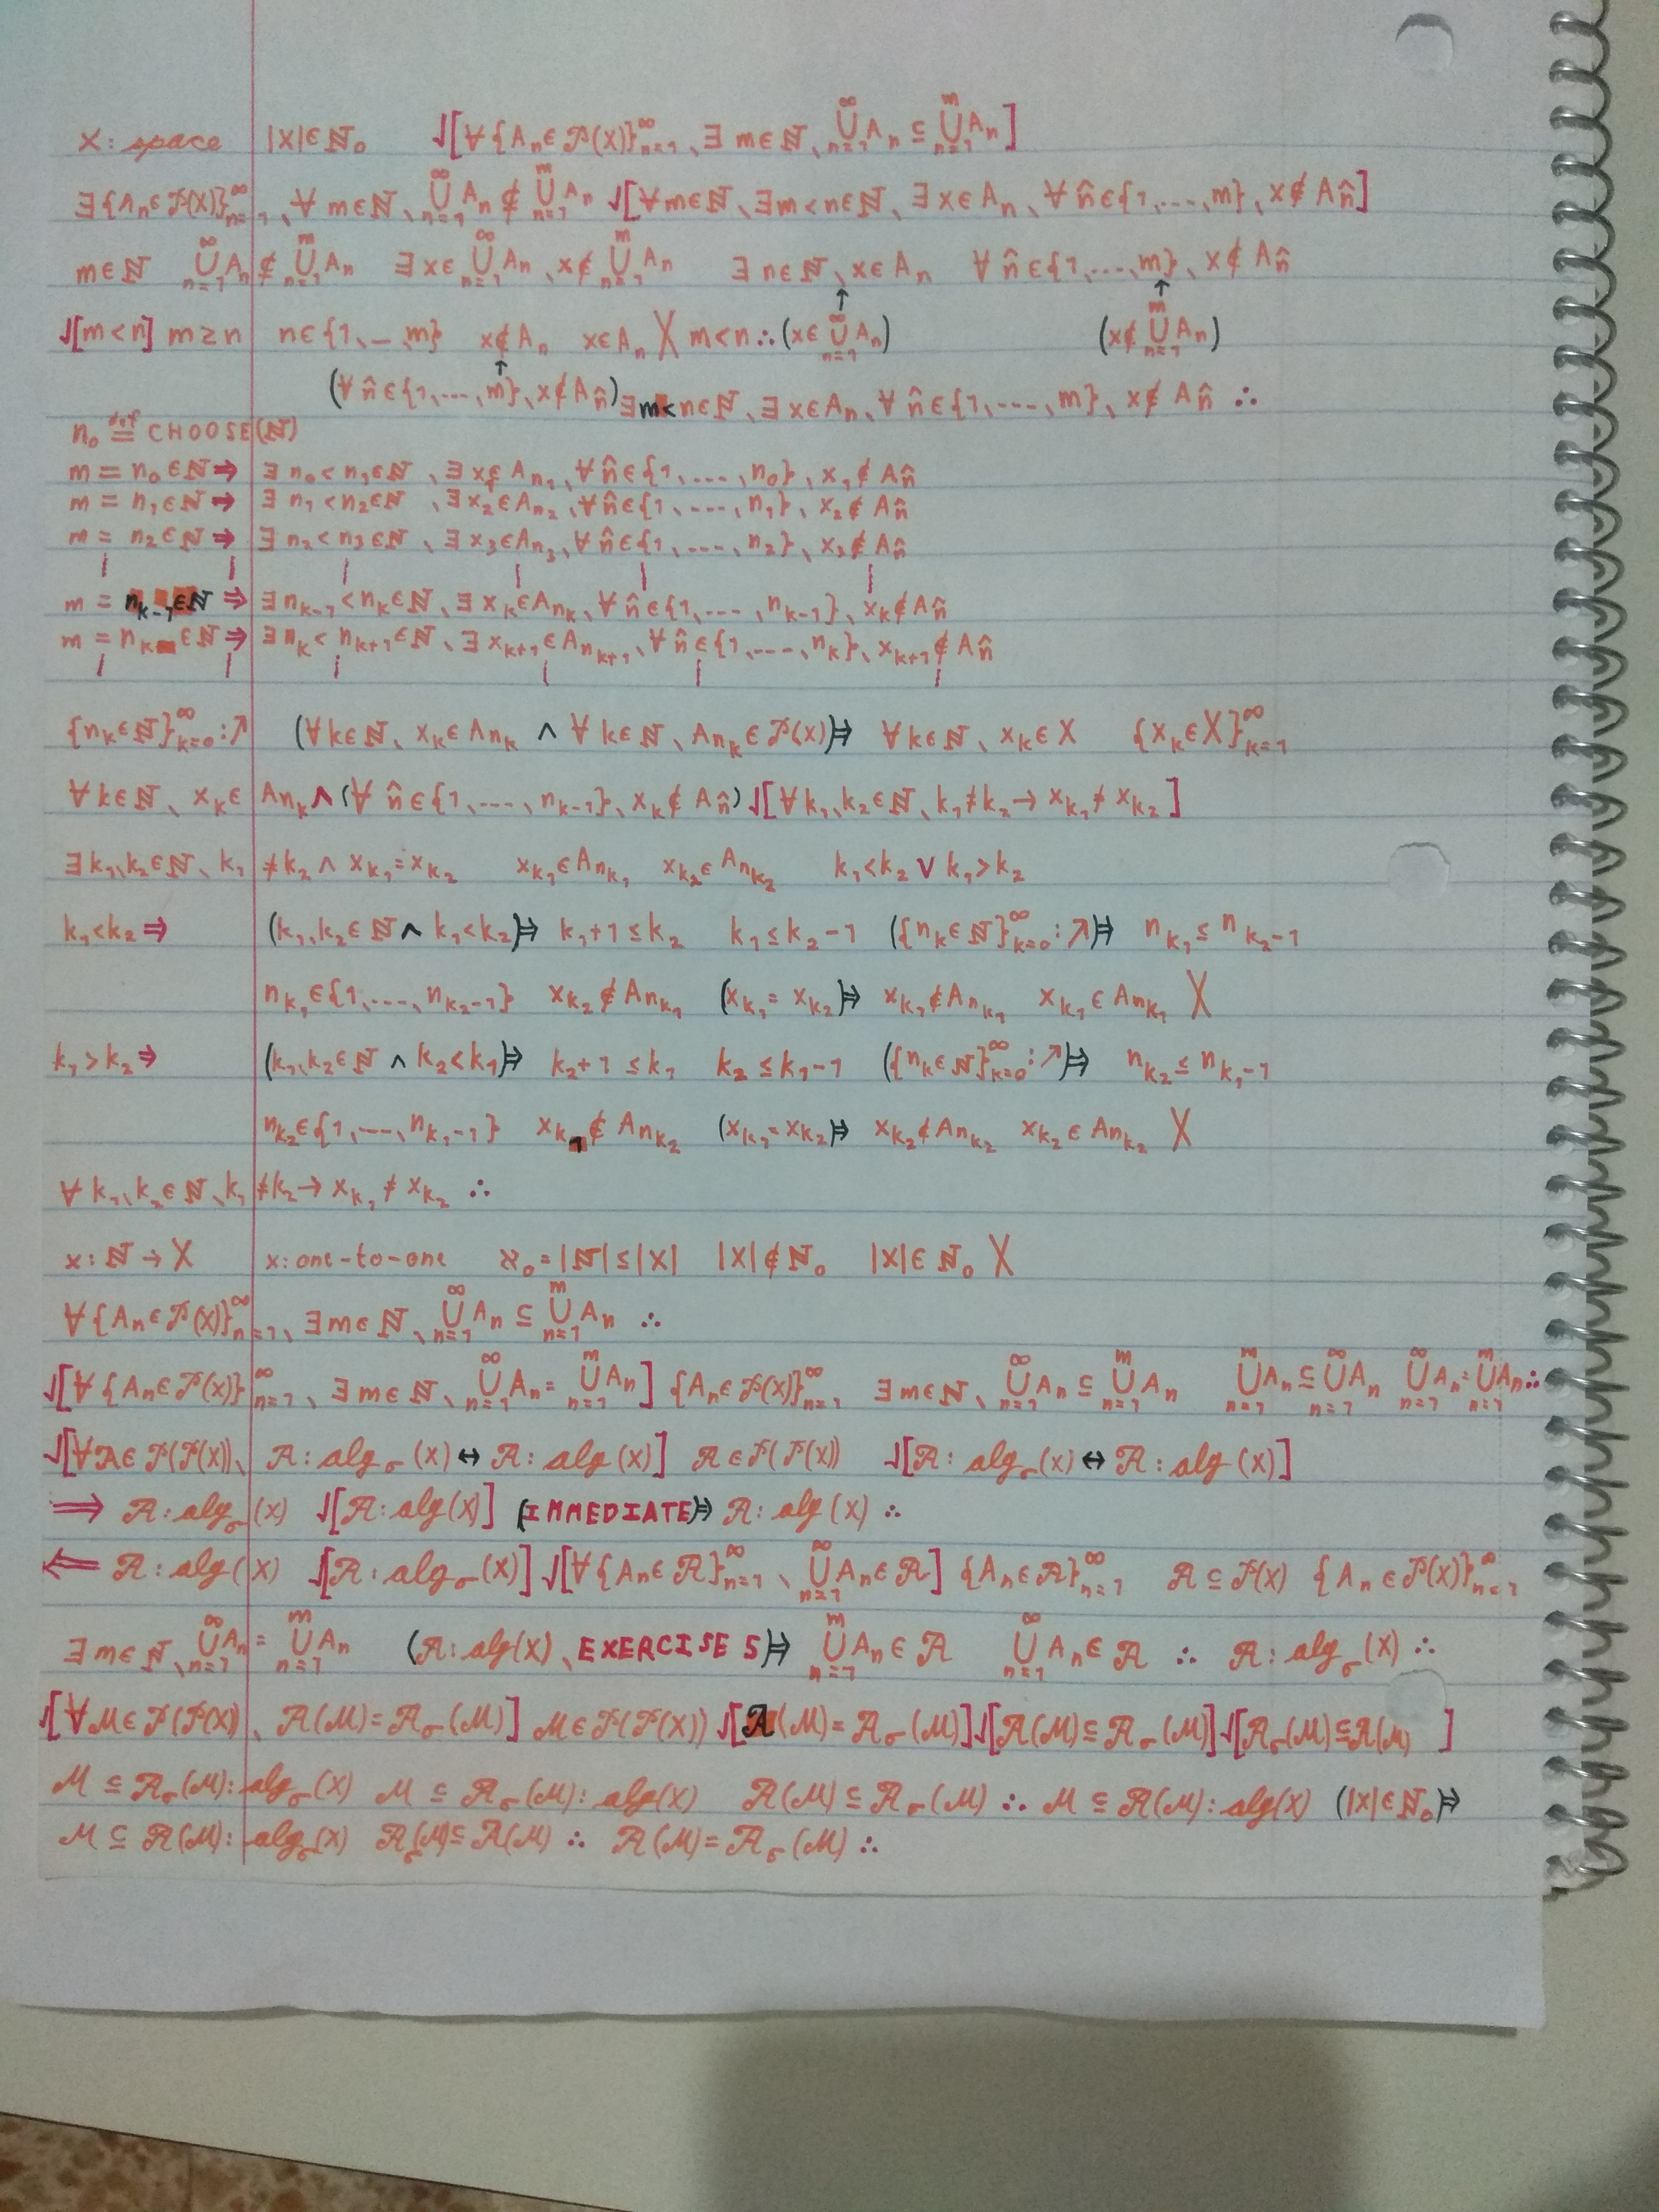 X: space |X|∈ℕ₀ √[∀{Aₙ∈𝒫(X)}_{n=1}^∞, ∃ m∈ℕ, ⋃_{n=1}^∞ Aₙ ⊆ ⋃_{n=1}^m Aₙ]
∃{Aₙ∈𝒫(X)}_{n=1}^∞, ∀ m∈ℕ, ⋃_{n=1}^∞ Aₙ ⊄ ⋃_{n=1}^m Aₙ √[∀m∈ℕ, ∃m<n∈ℕ, ∃x∈Aₙ, ∀ n̂∈{1,...,m}, x∉A_n̂]
m∈ℕ ⋃_{n=1}^∞ Aₙ ⊄ ⋃_{n=1}^m Aₙ ∃x∈⋃_{n=1}^∞ Aₙ, x∉⋃_{n=1}^m Aₙ ∃n∈ℕ, x∈Aₙ ∀ n̂∈{1,...,m}, x∉A_n̂
√[m<n] m≥n n∈{1,...,m} x∉Aₙ x∈Aₙ X m<n ∴ (x∈⋃_{n=1}^∞ Aₙ) ↑ (x∉⋃_{n=1}^m Aₙ) ↑
↑ (∀ n̂∈{1,...,m}, x∉A_n̂) ∃m<n∈ℕ, ∃x∈Aₙ, ∀ n̂∈{1,...,m}, x∉A_n̂ ∴
n₀ ≝ CHOOSE(ℕ)
m = n₀∈ℕ ⇒ ∃n₀<n₁∈ℕ, ∃x₁∈A_{n₁}, ∀n̂∈{1,...,n₀}, x₁∉A_n̂
m = n₁∈ℕ ⇒ ∃n₁<n₂∈ℕ, ∃x₂∈A_{n₂}, ∀n̂∈{1,...,n₁}, x₂∉A_n̂
m = n₂∈ℕ ⇒ ∃n₂<n₃∈ℕ, ∃x₃∈A_{n₃}, ∀n̂∈{1,...,n₂}, x₃∉A_n̂
| | | | | |
m = n_{k-1}∈ℕ ⇒ ∃n_{k-1}<n_k∈ℕ, ∃x_k∈A_{n_k}, ∀n̂∈{1,...,n_{k-1}}, x_k∉A_n̂
m = n_k∈ℕ ⇒ ∃n_k<n_{k+1}∈ℕ, ∃x_{k+1}∈A_{n_{k+1}}, ∀n̂∈{1,...,n_k}, x_{k+1}∉A_n̂
| | | | | |
{n_k∈ℕ}_{k=0}^∞:↗ (∀k∈ℕ, x_k∈A_{n_k} ∧ ∀k∈ℕ, A_{n_k}∈𝒫(X))⇒ ∀k∈ℕ, x_k∈X {x_k∈X}_{k=1}^∞
∀k∈ℕ, x_k∈A_{n_k} ∧ (∀n̂∈{1,...,n_{k-1}}, x_k∉A_n̂) √[∀k₁,k₂∈ℕ, k₁≠k₂ → x_{k₁}≠x_{k₂}]
∃k₁,k₂∈ℕ, k₁≠k₂ ∧ x_{k₁}=x_{k₂} x_{k₁}∈A_{n_{k₁}} x_{k₂}∈A_{n_{k₂}} k₁<k₂ ∨ k₁>k₂
k₁<k₂ ⇒ (k₁,k₂∈ℕ ∧ k₁<k₂)⇒ k₁+1≤k₂ k₁≤k₂-1 ({n_k∈ℕ}_{k=0}^∞:↗)⇒ n_{k₁}≤n_{k₂-1}
n_{k₁}∈{1,...,n_{k₂-1}} x_{k₂}∉A_{n_{k₁}} (x_{k₁}=x_{k₂})⇒ x_{k₁}∉A_{n_{k₁}} x_{k₁}∈A_{n_{k₁}} X
k₁>k₂ ⇒ (k₁,k₂∈ℕ ∧ k₂<k₁)⇒ k₂+1≤k₁ k₂≤k₁-1 ({n_k∈ℕ}_{k=0}^∞:↗)⇒ n_{k₂}≤n_{k₁-1}
n_{k₂}∈{1,...,n_{k₁-1}} x_{k₁}∉A_{n_{k₂}} (x_{k₁}=x_{k₂})⇒ x_{k₂}∉A_{n_{k₂}} x_{k₂}∈A_{n_{k₂}} X
∀k₁,k₂∈ℕ, k₁≠k₂ → x_{k₁}≠x_{k₂} ∴
x:ℕ→X x: one-to-one ℵ₀=|ℕ|≤|X| |X|∉ℕ₀ |X|∈ℕ₀ X
∀{Aₙ∈𝒫(X)}_{n=1}^∞, ∃m∈ℕ, ⋃_{n=1}^∞ Aₙ ⊆ ⋃_{n=1}^m Aₙ ∴
√[∀{Aₙ∈𝒫(X)}_{n=1}^∞, ∃m∈ℕ, ⋃_{n=1}^∞ Aₙ = ⋃_{n=1}^m Aₙ] {Aₙ∈𝒫(X)}_{n=1}^∞ ∃m∈ℕ, ⋃_{n=1}^∞ Aₙ ⊆ ⋃_{n=1}^m Aₙ ⋃_{n=1}^m Aₙ ⊆ ⋃_{n=1}^∞ Aₙ ⋃_{n=1}^∞ Aₙ = ⋃_{n=1}^m Aₙ ∴
√[∀𝒜∈𝒫(𝒫(X)), 𝒜: alg_σ(X) ↔ 𝒜: alg(X)] 𝒜∈𝒫(𝒫(X)) √[𝒜: alg_σ(X) ↔ 𝒜: alg(X)]
⇒ 𝒜: alg_σ(X) √[𝒜: alg(X)] (IMMEDIATE)⇒ 𝒜: alg(X) ∴
⇐ 𝒜: alg(X) √[𝒜: alg_σ(X)] √[∀{Aₙ∈𝒜}_{n=1}^∞, ⋃_{n=1}^∞ Aₙ∈𝒜] {Aₙ∈𝒜}_{n=1}^∞ 𝒜⊆𝒫(X) {Aₙ∈𝒫(X)}_{n=1}^∞
∃m∈ℕ, ⋃_{n=1}^∞ Aₙ = ⋃_{n=1}^m Aₙ (𝒜: alg(X), EXERCISE 5)⇒ ⋃_{n=1}^m Aₙ∈𝒜 ⋃_{n=1}^∞ Aₙ∈𝒜 ∴ 𝒜: alg_σ(X) ∴
√[∀ℳ∈𝒫(𝒫(X)), 𝒜(ℳ)=𝒜_σ(ℳ)] ℳ∈𝒫(𝒫(X)) √[𝒜(ℳ)=𝒜_σ(ℳ)] √[𝒜(ℳ)⊆𝒜_σ(ℳ)] √[𝒜_σ(ℳ)⊆𝒜(ℳ)]
ℳ⊆𝒜_σ(ℳ): alg_σ(X) ℳ⊆𝒜_σ(ℳ): alg(X) 𝒜(ℳ)⊆𝒜_σ(ℳ) ∴ ℳ⊆𝒜(ℳ): alg(X) (|X|∈ℕ₀)⇒
ℳ⊆𝒜(ℳ): alg_σ(X) 𝒜_σ(ℳ)⊆𝒜(ℳ) ∴ 𝒜(ℳ)=𝒜_σ(ℳ) ∴